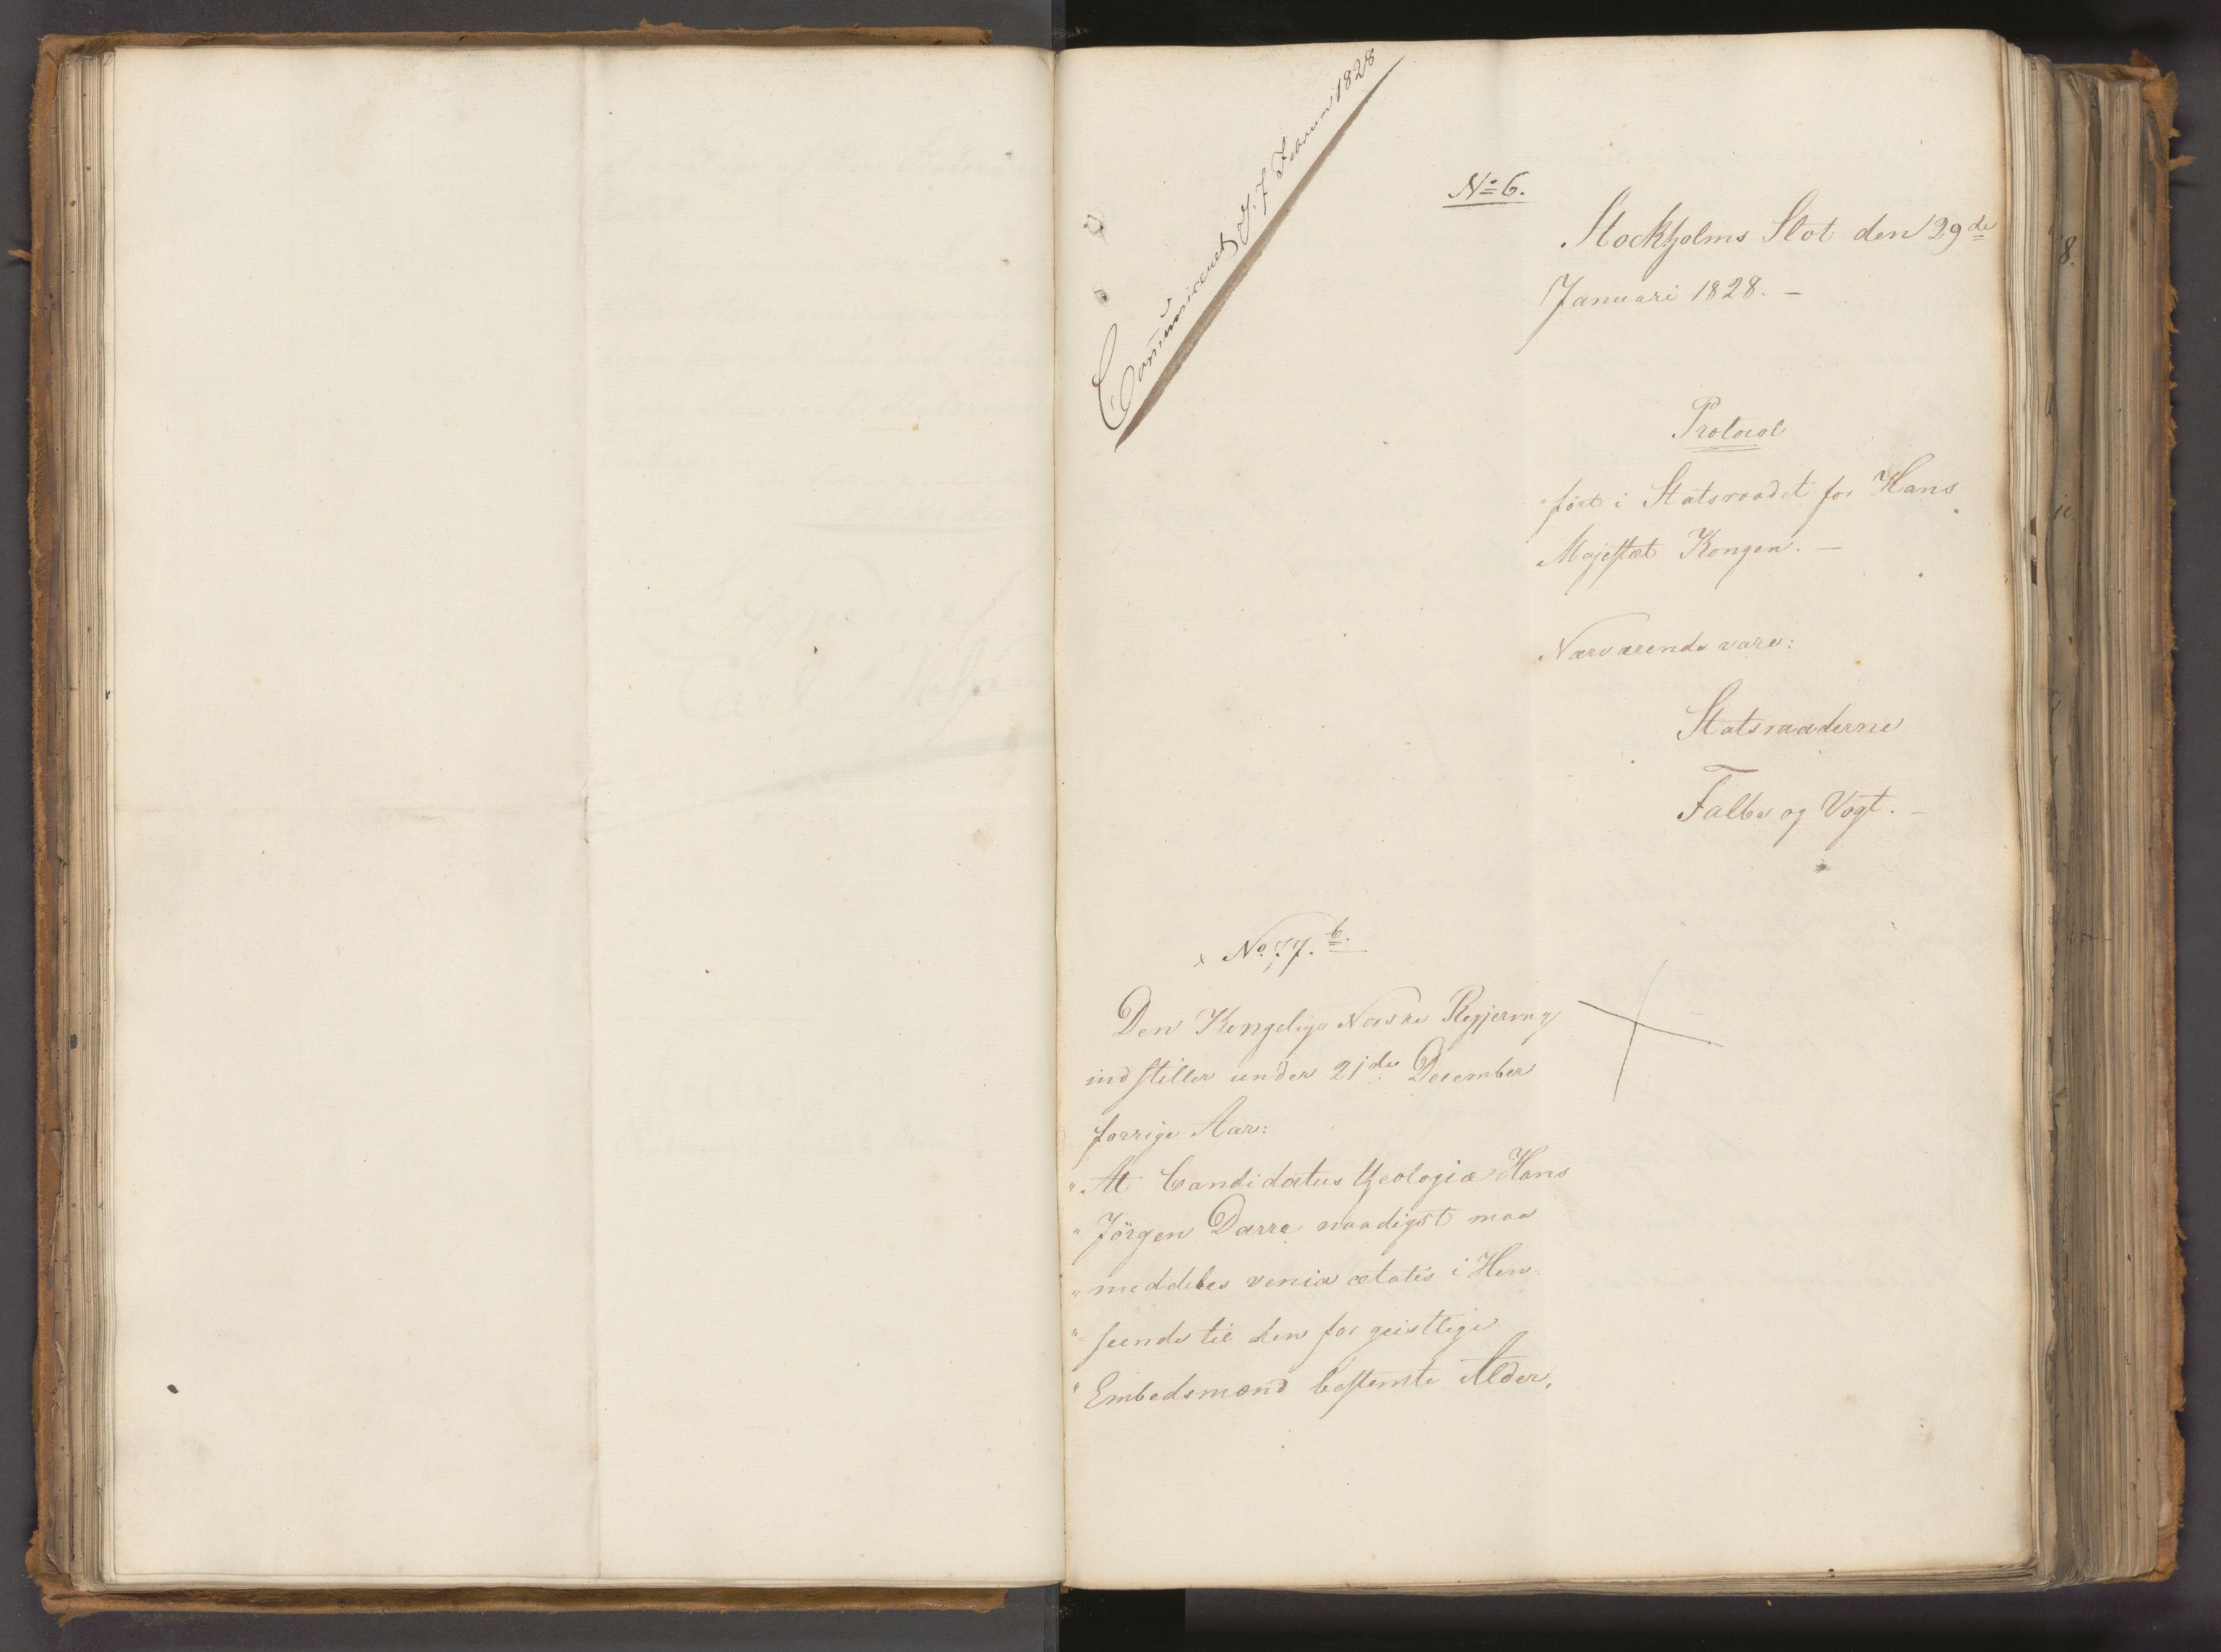 Communiceret d. 7 Februar 1828
No 6.
Stockholms Slot den 29de
Januari 1828. –
Protocol
ført i Statsraadet for Hans
Majestæt Kongen. –
Nærværende vare:
Statsraaderne
Falbe og Vogt. –
No 77. b.
Den Kongelige Norske Regjering
indstiller under 21de December
forrige Aar:
"At Candidatus theologiæ Hans
"Jörgen Darre naadigst maa
"meddeles venia ætatis i Hen-
"seende til den for geistlige
"Embedsmænd bestemte Alder,